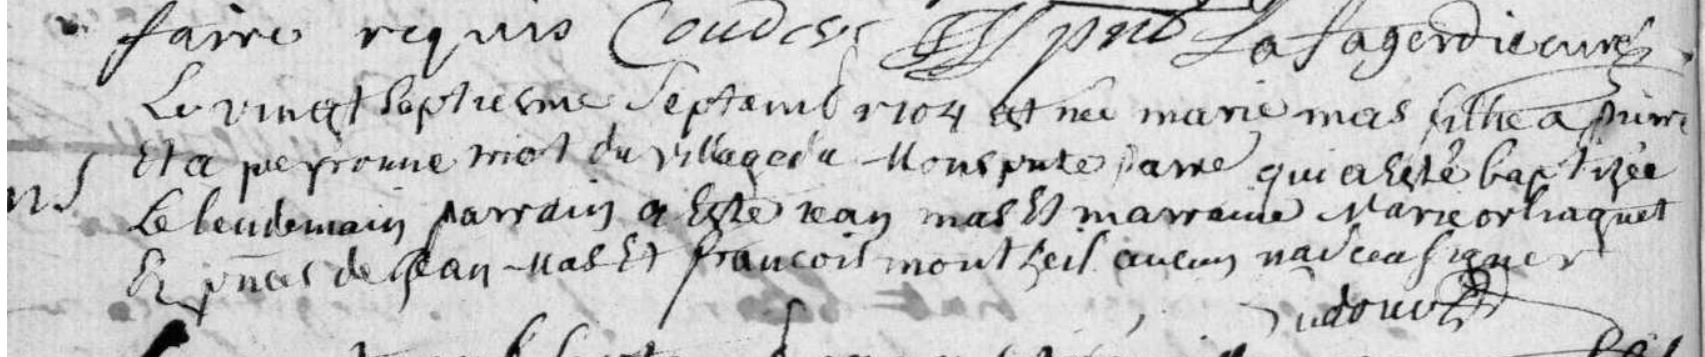 faire requis Coudere present Lafagerdie curé
Le vingt septiesme Septemb 1704 est née marie mas filhe a pierre
Et a peyronne niot du village du Mons pnte parre qui a Esté baptizée
Le lendemain parrain a Esté iean mas Et marraine Marie
En pnces de Jean Mas Et francois montheil aucun na sceu signer